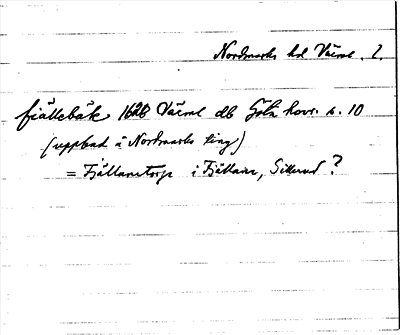 Nordmarks hd Värml. 2.
fiällebäk 1626 Värml db Göta hovr. s. 10
(uppbud å Nordmarks ting)
= Fjällanetorp i Fjällane, Sillerud?